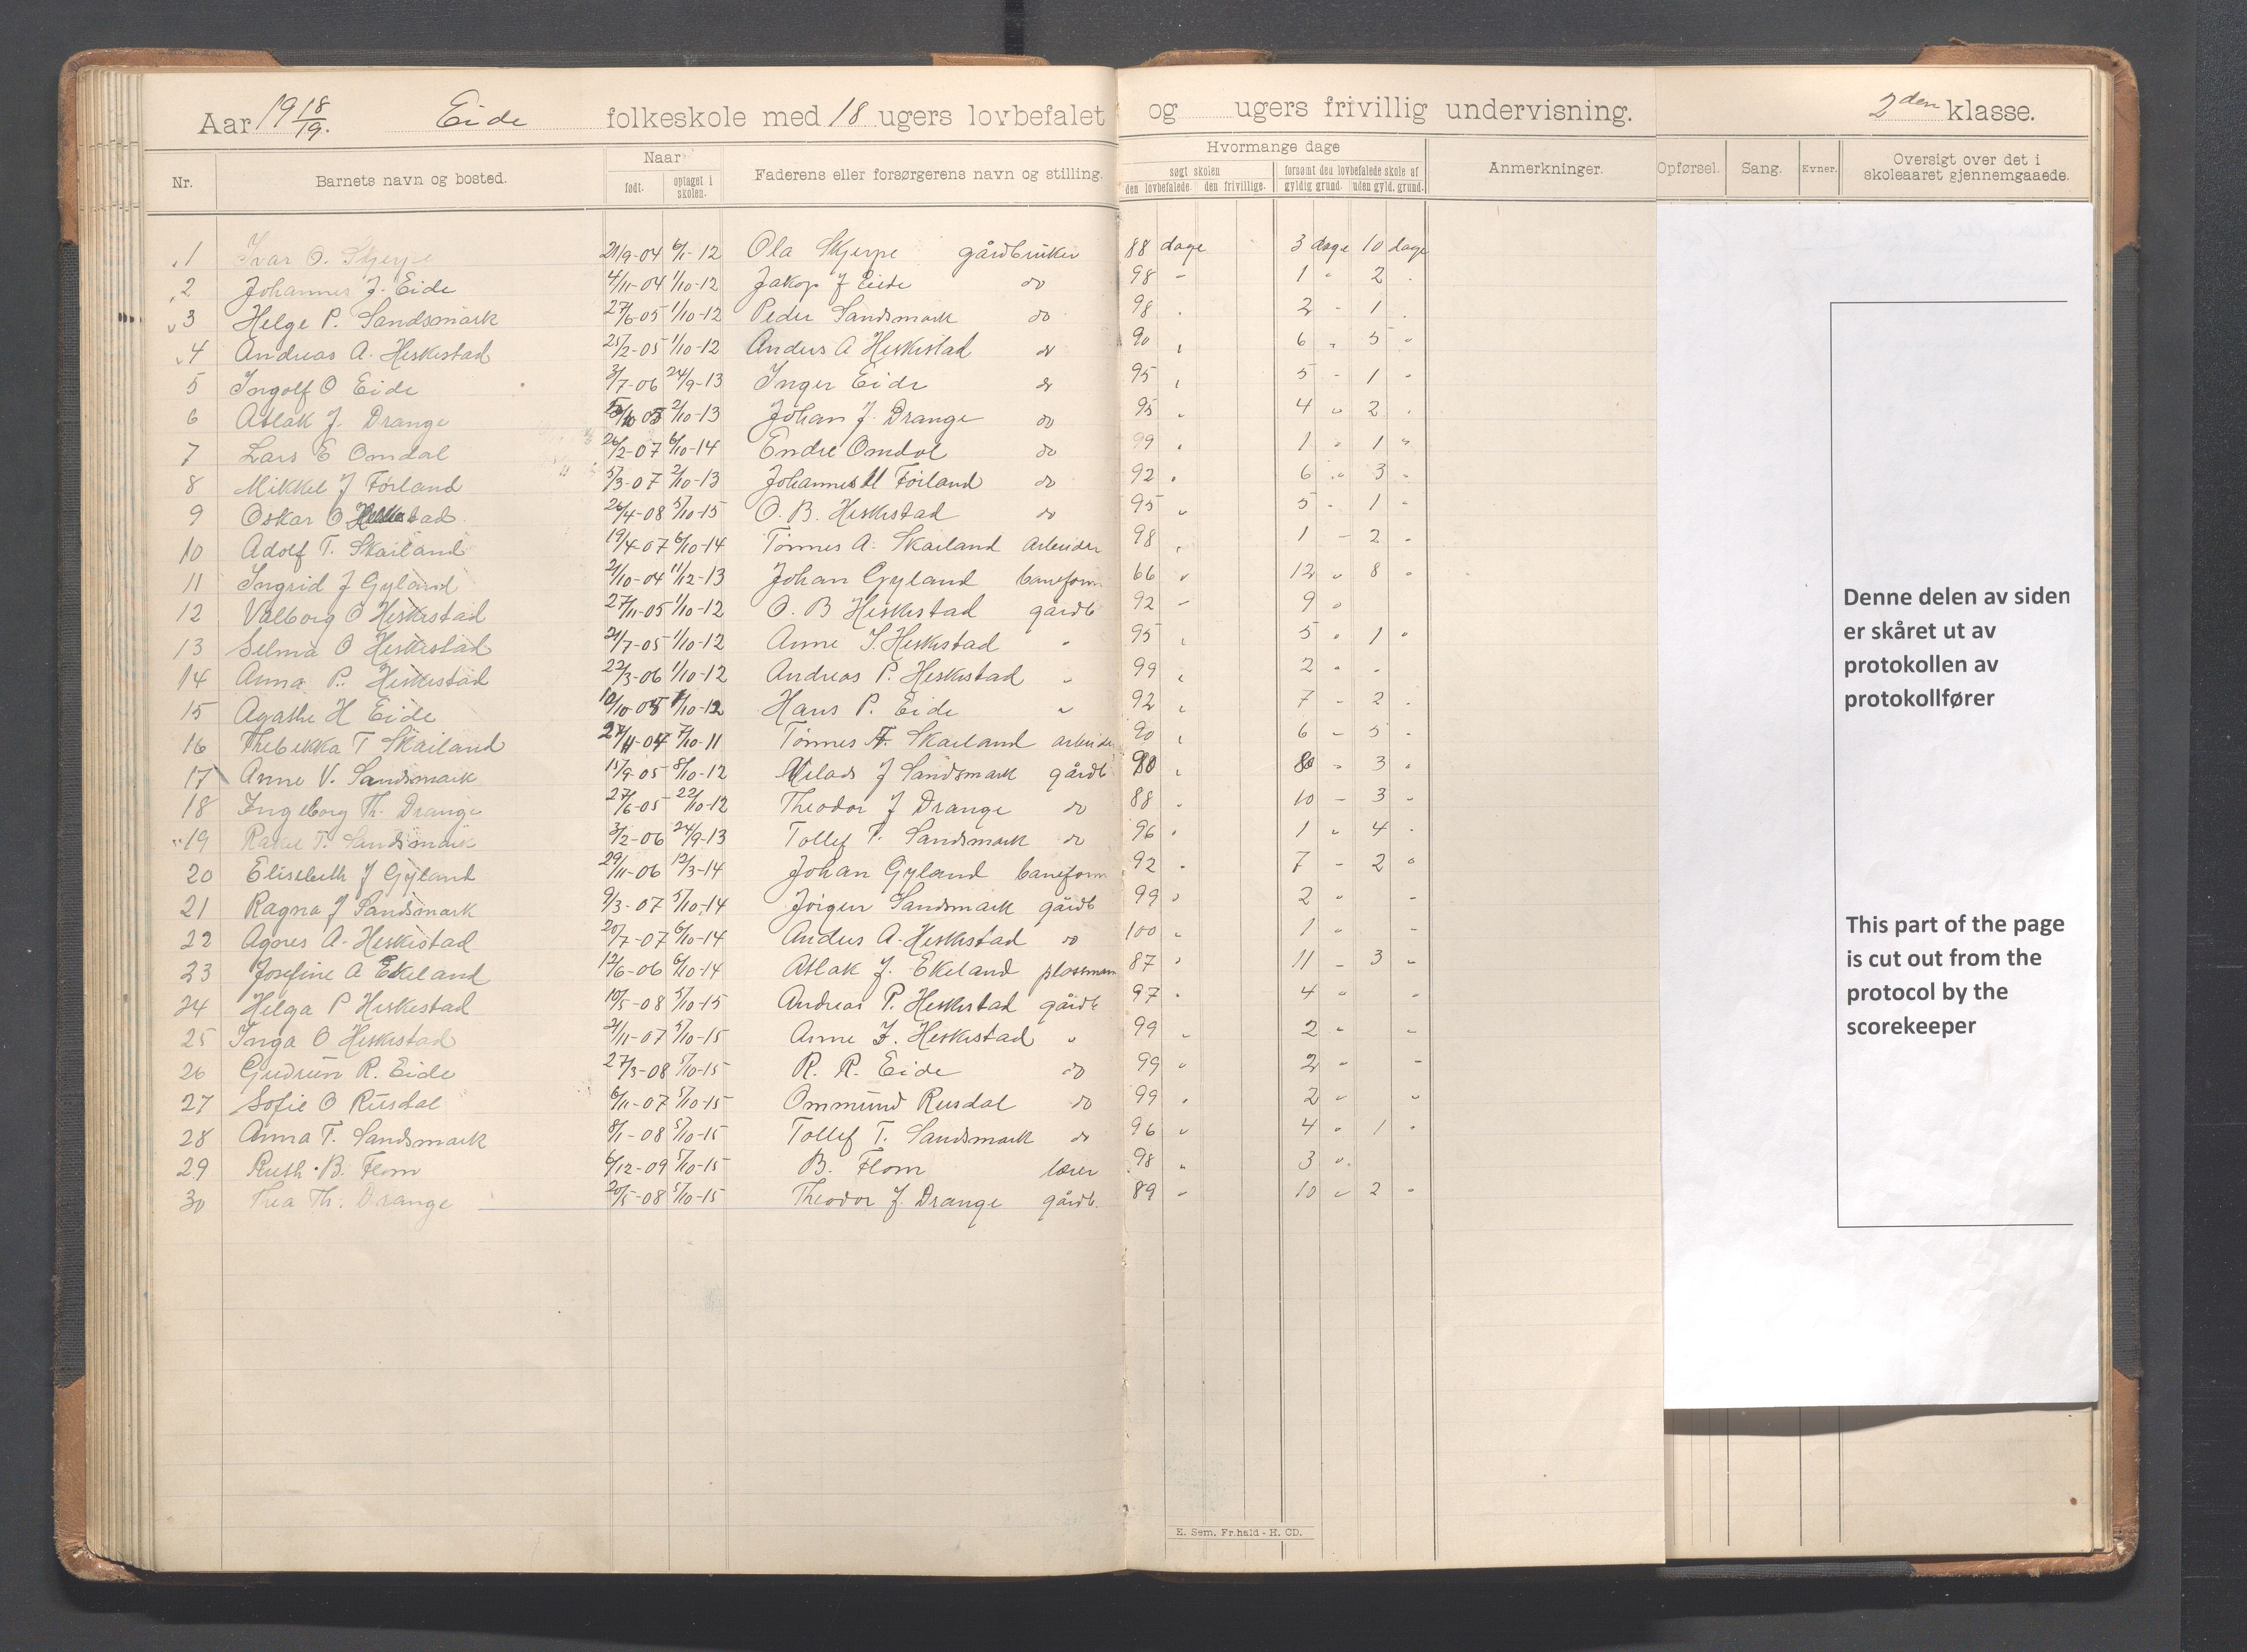 Aar 19 18/19. Eide folkeskole med 18 ugers lovbefalet og ugers frivillig undervisning. 2den klasse.
Nr. Barnets navn og bosted. Naar født. optaget i skolen. Faderens eller forsørgerens navn og stilling. Hvormange dage søgt skolen den lovbefalede. den frivillige. forsømt den lovbefalede skole af gyldig grund. uden gyld. grund. Anmerkninger. Opførsel. Sang. Evner. Oversigt over det i skoleaaret gjennemgaaede.
1 Ivar O. Skjerpe 21/9-04 6/1-12 Ola Skjerpe gårdbruker 88 dage 3 dage 10 dage
2 Johannes J. Eide 4/11-04 1/10-12 Jakop J Eide do 98 - 1 " 2 .
3 Helge P. Sandsmark 27/6-05 1/10-12 Peder Sandsmark do 98 . 2 - 1 .
4 Andreas A. Heskestad 25/2-05 1/10-12 Anders A Heskestad do 90 , 6 , 5 "
5 Ingolf O Eide 3/7-06 24/9-13 Inger Eide do 95 , 5 - 1 -
6 Aslak J. Drange 2/10-13 Johan J. Drange do 95 " 4 " 2 .
7 Lars E Omdal 26/2-07 6/10-14 Endre Omdal do 99 . 1 " 1 "
8 Mikkel J Førland 5/3-07 2/10-13 Johannes M Førland do 92 . 6 " 3 -
9 Oskar O Heskestad 26/4-08 5/10-15 O. B. Heskestad do 95 " 5 - 1 -
10 Adolf T. Skailand 19/4-07 6/10-14 Tønnes A. Skailand arbeider 98 , 1 - 2 .
11 Ingrid J Gyland 2/10-04 11/12-13 Johan Gyland baneform 66 " 12 " 8 "
12 Valborg O Heskestad 27/11-05 1/10-12 O. B Heskestad gårdb 92 - 9 "
13 Selma O Heskestad 21/7-05 1/10-12 Anne I. Heskestad " 95 , 5 " 1 "
14 Anna P. Heskestad 22/3-06 1/10-12 Andreas P. Heskestad " 99 , 2 " -
15 Agathe H Eide Hans P. Eide " 92 , 7 - 2 .
16 Thebekka T Skailand 7/10-11 Tønnes A. Skailand arbeider 90 , 6 - 5 .
17 Anne V. Sandsmark 15/9-05 8/10-12 J Sandsmark gårdb , - 3 "
18 Ingeborg Th. Drange 27/6-05 22/10-12 Theodor J Drange do 88 . 10 - 3 -
19 Rakel T. Sandsmark 3/2-06 24/9-13 Tollef T. Sandsmark do 96 . 1 " 4 .
20 Elisebeth J Gyland 29/11-06 12/3-14 Johan Gyland baneform 92 . 7 - 2 "
21 Ragna J Sandsmark 9/3-07 5/10-14 Jørgen Sandsmark gårdb 99 " 2 " -
22 Agnes A. Heskestad 20/7-07 6/10-14 Anders A. Heskestad do 100 " 1 " -
23 Josefine A Ekeland 12/6-06 6/10-14 Aslak J. Ekeland plassman 87 " 11 - 3 "
24 Helga P Heskestad 10/5-08 5/10-15 Andreas P. Heskestad gårdb 97 . 4 " -
25 Inga O Heskestad 2/11-07 5/10-15 Anne I. Heskestad " 99 " 2 " -
26 Gudrun R. Eide 27/3-08 5/10-15 R. R. Eide do 99 " 2 " -
27 Sofie O Rusdal 6/11-07 5/10-15 Ommund Rusdal do 99 . 2 " "
28 Anna T. Sandsmark 8/1-08 5/10-15 Tollef T. Sandsmark do 96 " 4 " 1 "
29 Ruth B. Flom 6/12-09 5/10-15 B. Flom lærer 98 " 3 "
30 Thea Th. Drange 20/5-08 5/10-15 Theodor J. Drange gårdb. 89 - 10 " 2 "
E. Sem. Fr.hald - H. CD.
Denne delen av siden
er skåret ut av
protokollen av
protokollfører
This part of the page
is cut out from the
protocol by the
scorekeeper